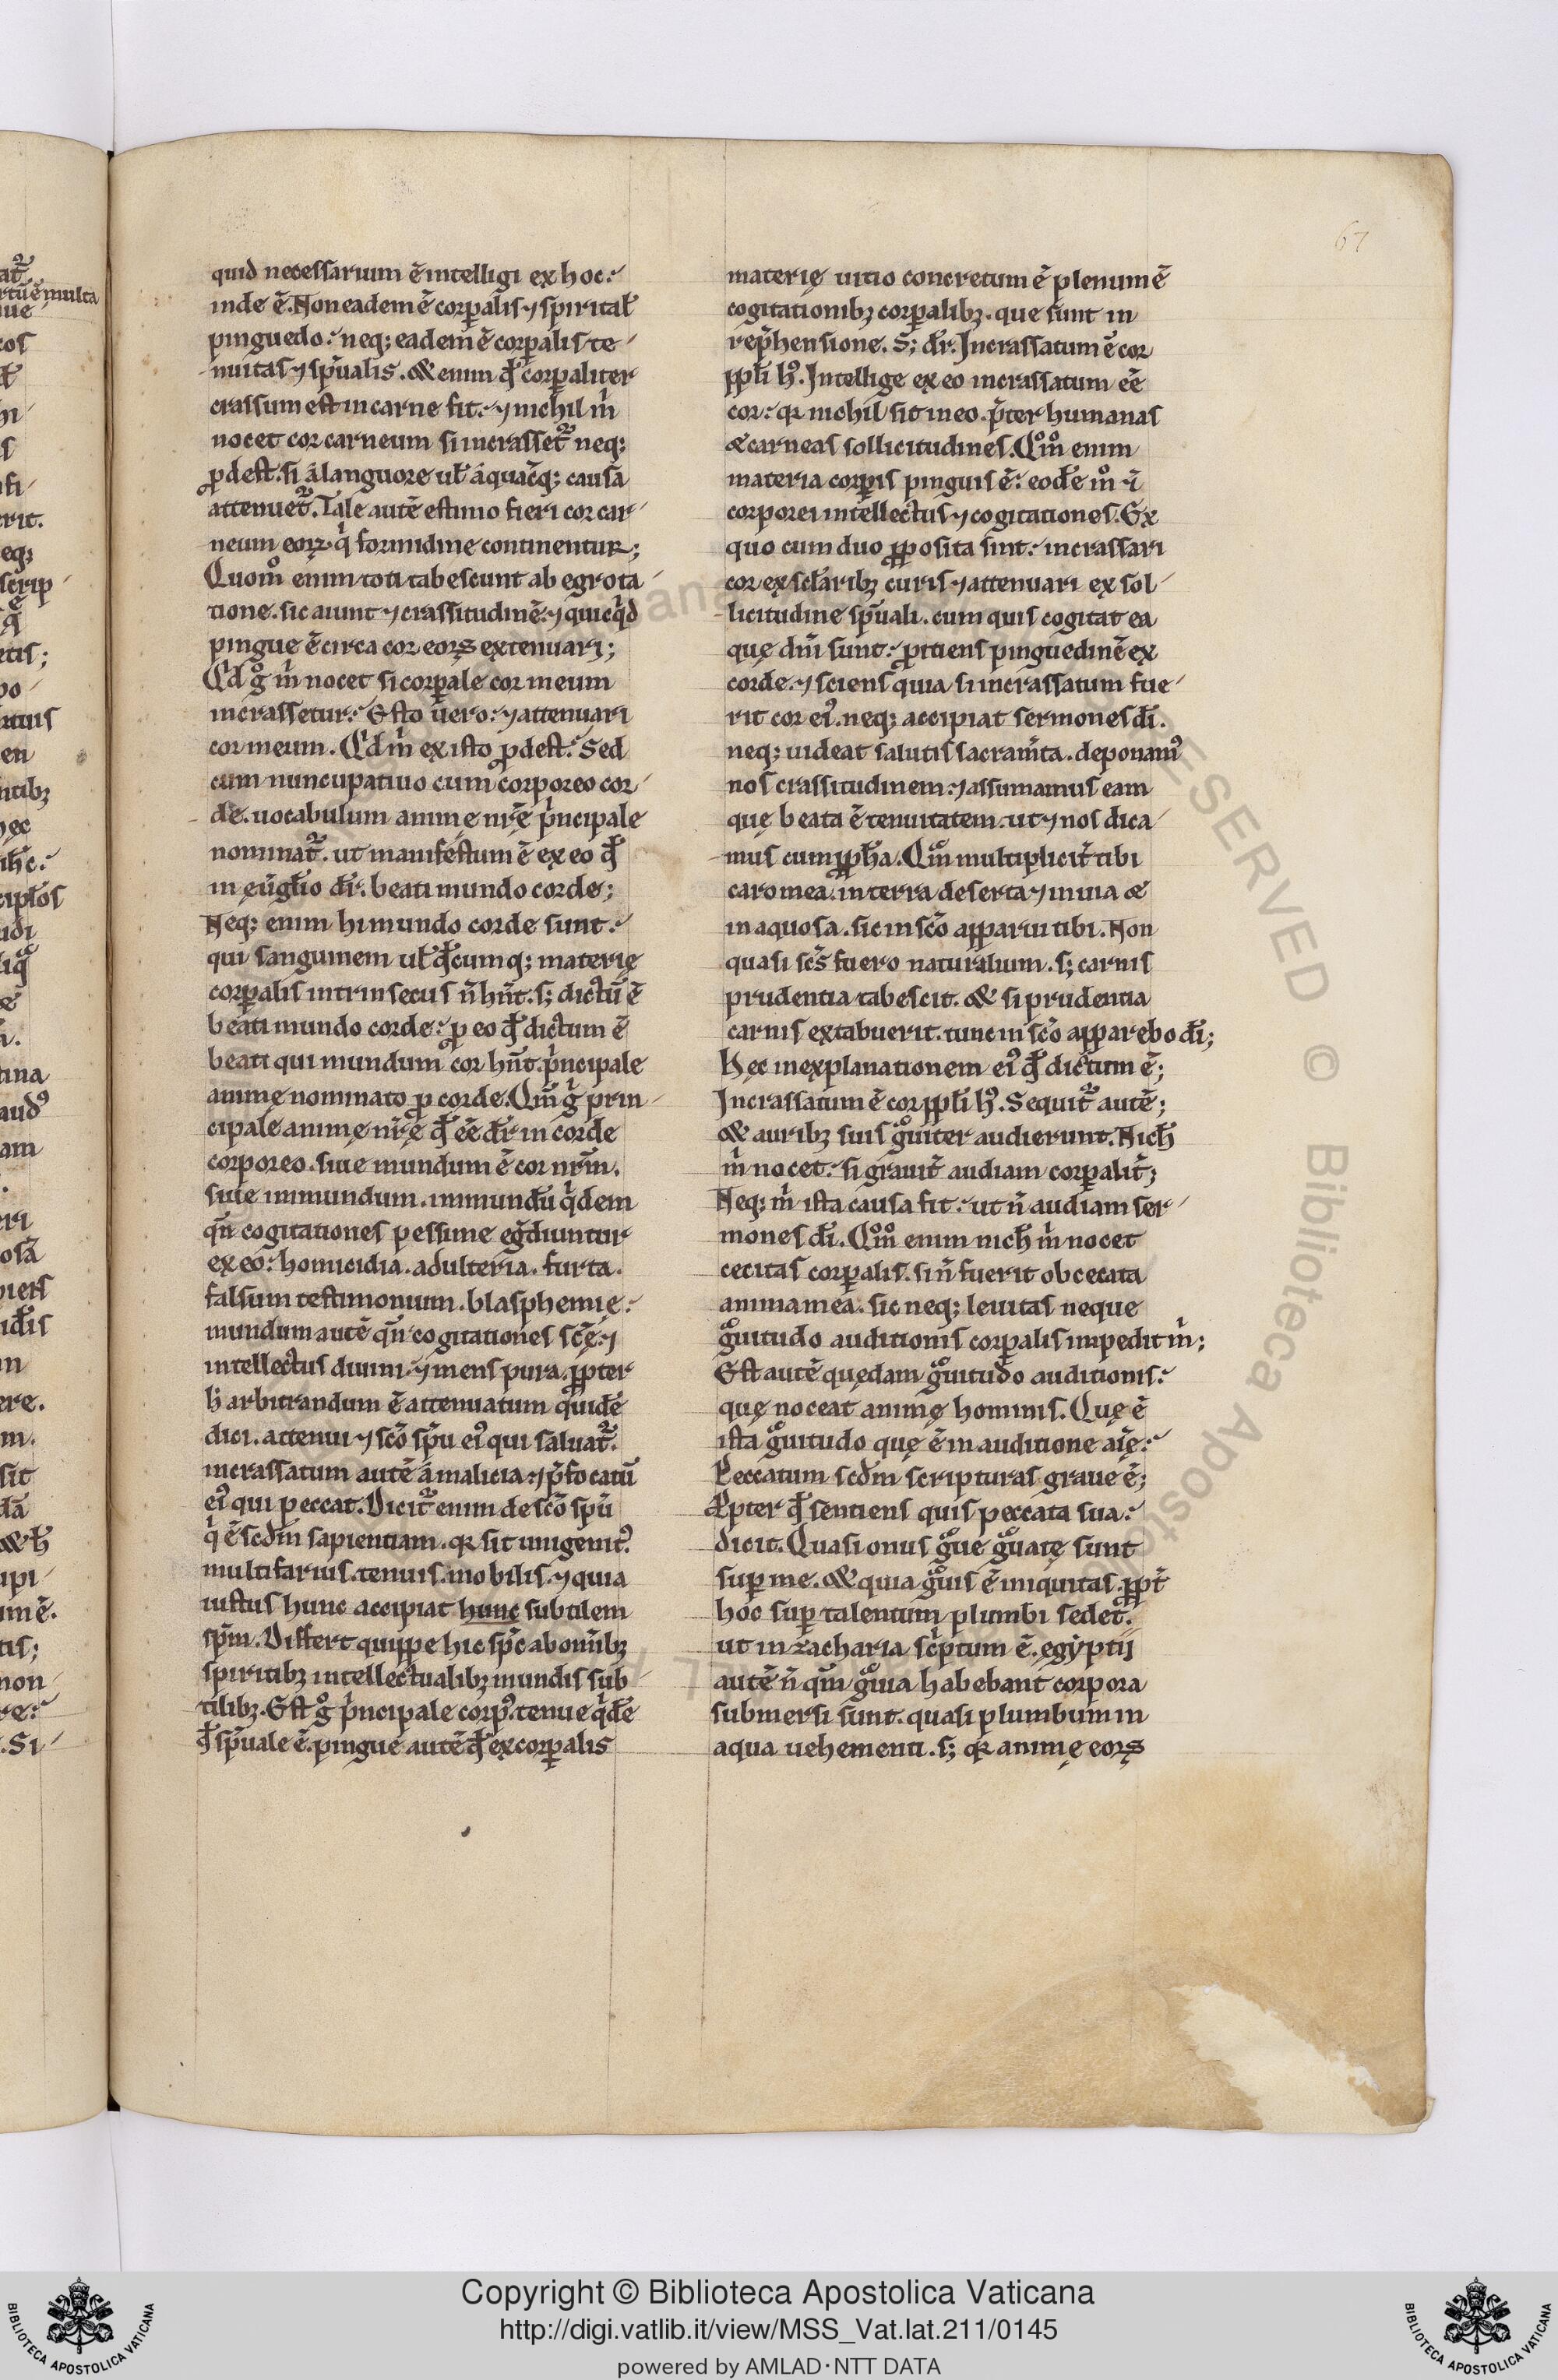 67
quid necessarium ē intelligi ex hoc:
inde ē. Non eadem ē corꝑalis ⁊ spiritał
pinguedo: neq; eadem ē corꝑalis te-
nuitas ⁊ sp̄ualis. & enim qđ corꝑaliter
crassum est in carne fit: ⁊ nichil m̄
nocet cor carneum si incrasset᷑ neq;
ꝓdest. si á languore uł á quacq; causa
attenuet᷑. Tale autē estimo fieri cor car-
neum eoꝝ qͥ formidine continentur;
Quom̊ enim toti tabescunt ab egrota-
tione. sic aiunt ⁊ crassitudinē: ⁊ quicqͥd
pingue ē circa cor eoꝝ extenuari;
Qd g̊ m̄ nocet si corꝑale cor meum
incrassetur: Esto uero: ⁊ attenuari
cor meum. Qd m̄ ex isto ꝓdest: Sed
cum nuncupatiuo cum corporeo cor-
de. uocabulum anime nr̄ę pͥncipale
nominat᷑. ut manifestum ē ex eo qđ
in eug̃lio dr̄. beati mundo corde;
Neq; enim hi mundo corde sunt:
qui sanguinem uł qđcumq; materię
corꝑalis intrinsecus n̄ hn̄t. s; dictū ē
beati mundo corde: ꝑ eo qđ dictum ē
beati qui mundum cor hn̄t. pͥncipale
animę nominato ꝓ corde. Qm̄ gͥ prin-
cipale animę nr̄ę qđ ee dr̄ in corde
corporeo. siue mundum ē cor nrm̄.
siue immundum. immundū qͥdem
qn̄ cogitationes pessime eg̃diuntur
ex eo: homicidia. adulteria. furta.
falsum testimonium. blasphemie:
mundum autē qn̄ cogitationes scę̄: ⁊
intellectus diuini. ⁊ mens pura. ꝓpter
h̄ arbitrandum ē attenuatum quidē
dici. attenui ⁊ scō sp̄u eiꝰ qui saluat᷑.
incrassatum autē á malicia: ⁊ p̄focatū
eiꝰ qui peccat. Dicit᷑ enim de scō spū
qͥ ē scdm̄ sapientiam. qꝛ sit unigenitꝰ.
multifarius. tenuis. mobilis. ⁊ quia
iustus hunc accipiat hunc subtilem
sp̄m. Differt quippe hic sp̄c ab om̄ibꝫ
spiritibꝫ intellectualibꝫ mundis sub-
tilibꝫ. Est g̊ pͥncipale corpꝰ. tenue qͥdē
qđ sp̄uale ē. pingue autē qđ ex corꝑalis
materię uitio concretum ē plenum ē
cogitationibꝫ corꝑalibꝫ. que sunt in
rep̄hensione. S; dr̄. Incrassatum ē cor
ppłi hꝰ. Intellige ex eo incrassatum ee̅
cor: qꝛ nichil sit in eo. p̄ter humanas
& carneas sollicitudines. Qm̊ enim
materia corꝑis pinguis ē: eodē m̊ ⁊
corporei intellectus ⁊ cogitationes. Ex
quo cum duo ꝓposita sint: incrassari
cor ex scłaribꝫ curis ⁊ attenuari ex sol-
licitudine sp̄uali. cum quis cogitat ea
quę dn̄i sunt: ꝓitiens pinguedinē ex
corde. ⁊ sciens quia si incrassatum fue-
rit cor eiꝰ. neq; accipiat sermones dī.
neq; uideat salutis sacram̄ta. deponamꝰ
nos crassitudinem: ⁊ assumamus eam
quę beata ē tenuitatem. ut ⁊ nos dica-
mus cum ꝓph̄a. Qm̊ multiplicit̄ tibi
caro mea. in terra deserta ⁊ inuia &
inaquosa. sic in scō apparui tibi. Non
quasi scs̄ fuero naturalium. s; carnis
prudentia tabescit. & si prudentia
carnis extabuerit. tunc in scō apparebo dī;
Hęc in explanationem eiꝰ qđ dictum ē;
Incrassatum ē cor ppłi hꝰ. Sequit᷑ autē;
& auribꝫ suis gͣuiter audierunt. Nich̄
m̄ nocet: si grauit̄ audiam corꝑalit̄;
Neq; m̄ ista causa fit: ut n̄ audiam ser-
mones dī. Qm̊ enim nich̄ m̄ nocet
cecitas corꝑalis. si n̄ fuerit obcecata
anima mea. sic neq; leuitas neque
gͣuitudo auditionis corꝑalis impedit m̄;
Est autē quędam gͣuitudo auditionis:
quę noceat animę hominis. Quę ē
ista gͣuitudo quę ē in auditione aīę:
Peccatum scdm̄ scripturas graue ē;
Ꝓpter qđ sentiens quis peccata sua:
dicit. Quasi onus gͣue gͣuatę sunt
suꝑ me. & quia gͣuis ē iniquitas. ꝓpt̄
hoc suꝑ talentum plumbi sedet᷑.
ut in zacharia scͥptum ē. egyptij
autē n̄ qm̄ gͣuia habebant corpora
submersi sunt. quasi plumbum in
aqua uehementi. s; qꝛ animę eoꝝ
Copyright © Biblioteca Apostolica Vaticana
http://digi.vatlib.it/view/MSS_Vat.lat.211/0145
powered by AMLAD·NTT DATA